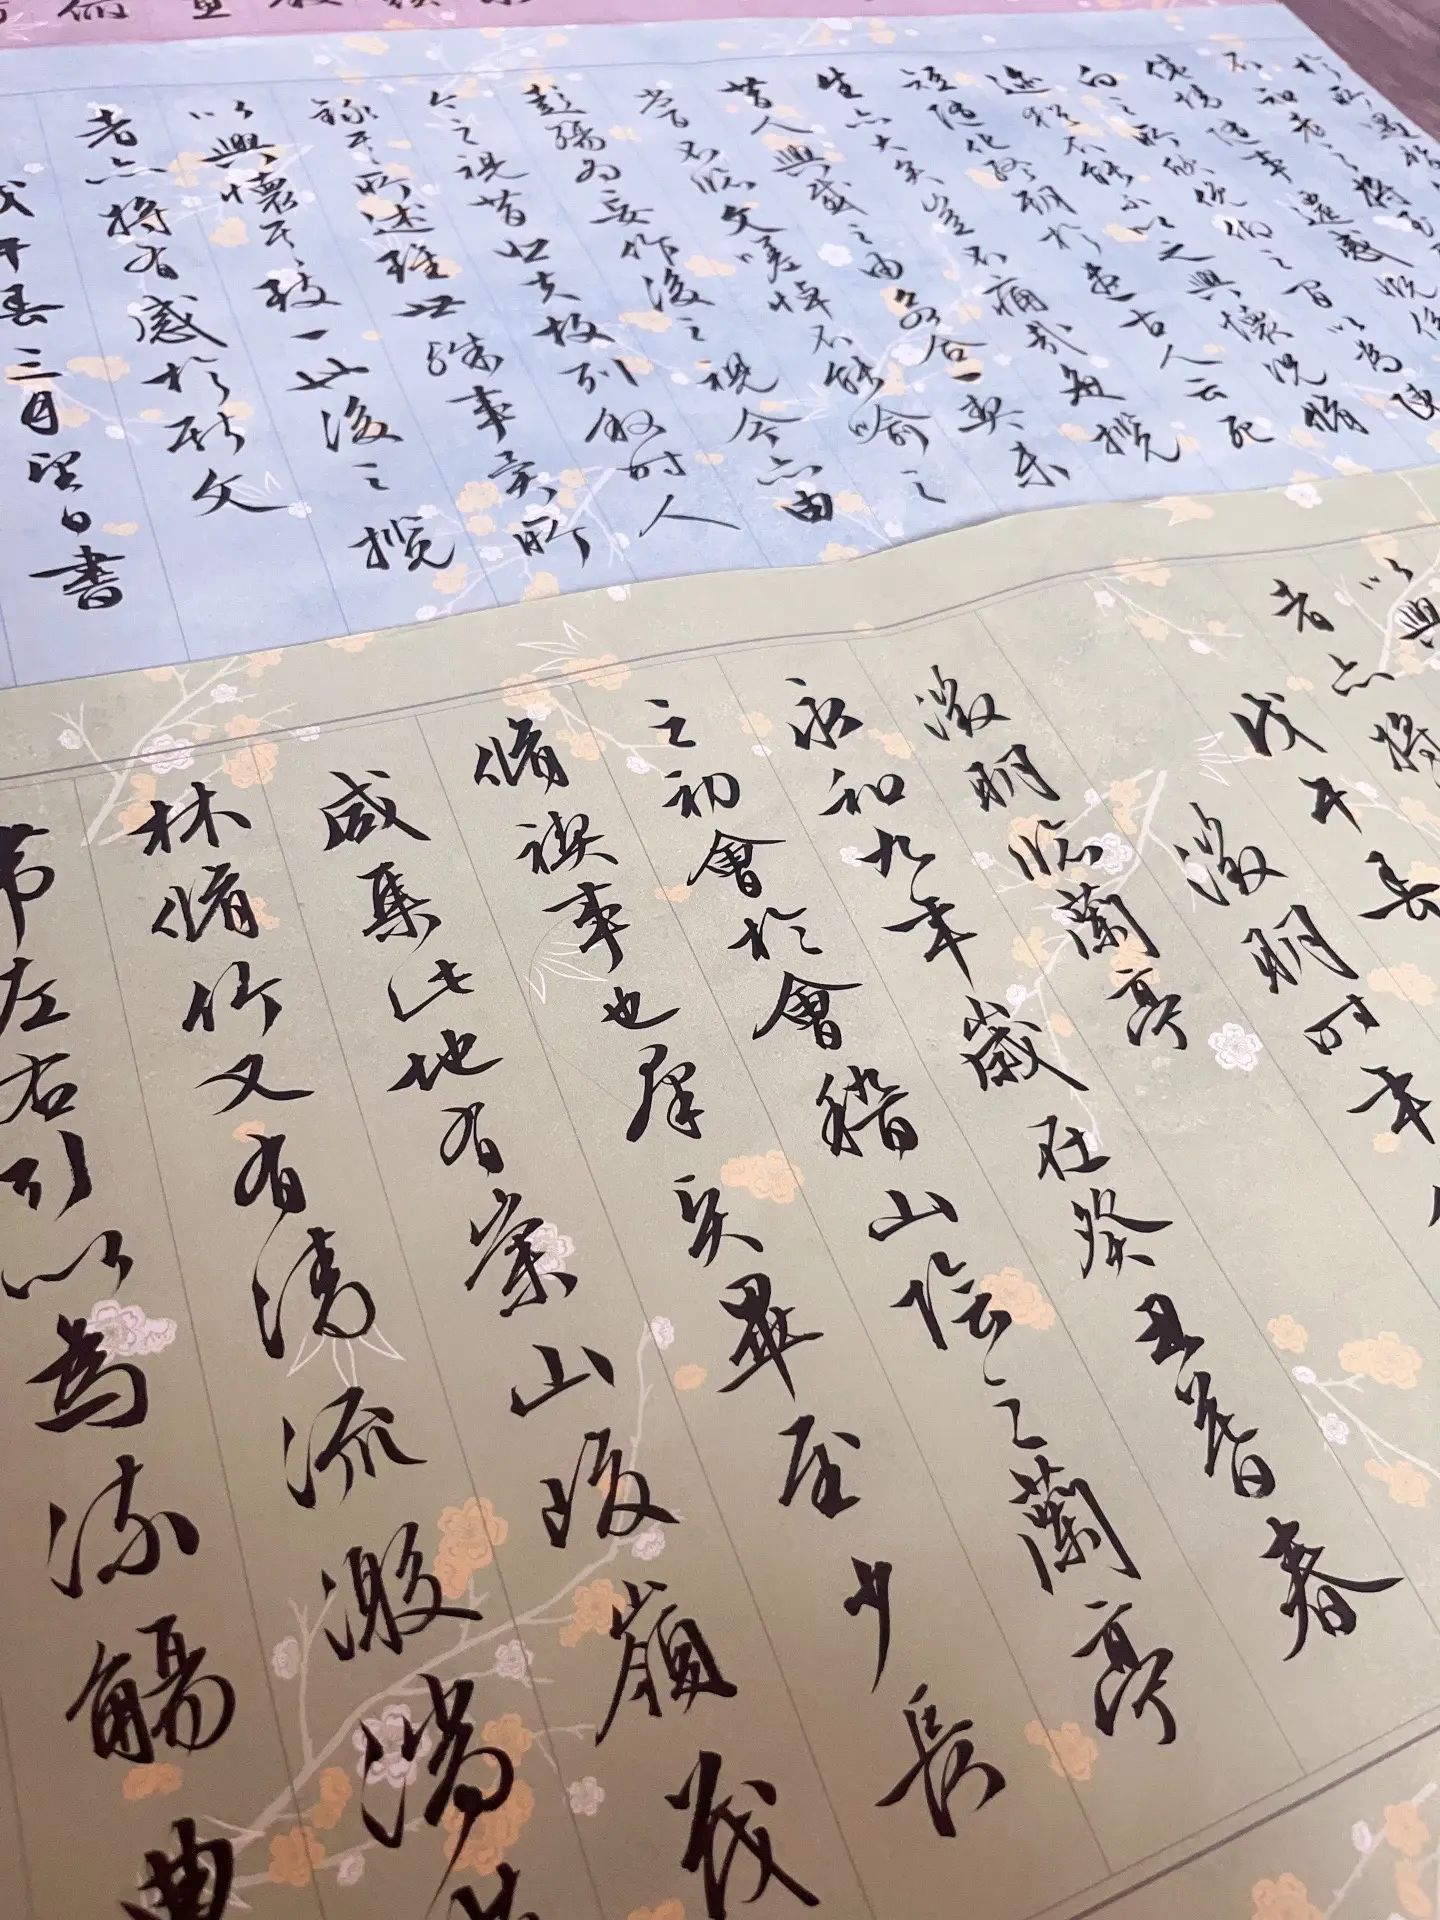 於所遇
不知老之將至
惓情隨事遷感慨係
向之所欣俛仰之間以為陳
迹猶不能不以之興懷況脩
短隨化終期於盡古人云死
生亦大矣豈不痛哉每攬
昔人興感之由若合一契未
嘗不臨文嗟悼不能喻之
彭殤為妄作後之視今亦由
今之視昔悲夫故列敘時人
錄其所述雖世殊事異所
以興懷其致一也後之攬
者亦將有感於斯文
戊午春三月望日書
以興
者亦將
戊午春
徵明時年
徵明臨蘭亭
永和九年歲在癸丑暮春
之初會於會稽山陰之蘭亭
脩禊事也群賢畢至少長
咸集此地有崇山峻嶺茂
林脩竹又有清流激湍
帶左右引以為流觴曲